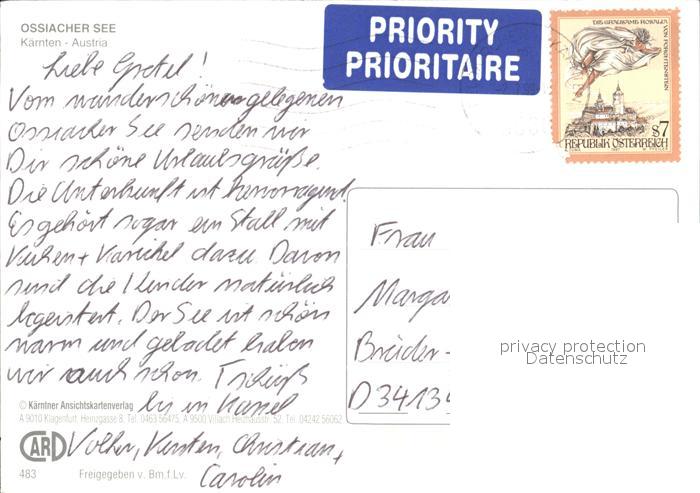 OSSIACHER SEE
Kärnten - Austria
Liebe Gretel!
Vom wunderschönen gelegenen
Ossiacher See senden wir
Dir schöne Urlaubsgrüße.
Die Unterkunft ist hervorragend.
Es gehört sogar ein Stall mit
Kühen + Karnickel dazu. Davon
sind die Kinder natürlich
begeistert. Der See ist schön
warm und gebadet haben
wir auch schon. Tschüß
bis in Kassel
Volker, Kersten, Christian +
Carolin
© Kärntner Ansichtskartenverlag
A 9010 Klagenfurt, Heinzgasse 8, Tel. 0463 56475, A 9500 Villach, Heizhausstr. 52, Tel. 04242 56062
CARD
483 Freigegeben v. Bm.f.Lv.
PRIORITY
PRIORITAIRE
DIE GRAUSAME ROSALIA
VON FORCHTENSTEIN
S7
REPUBLIK ÖSTERREICH
Frau
Marga
Brüder-
D 3413
privacy protection
Datenschutz